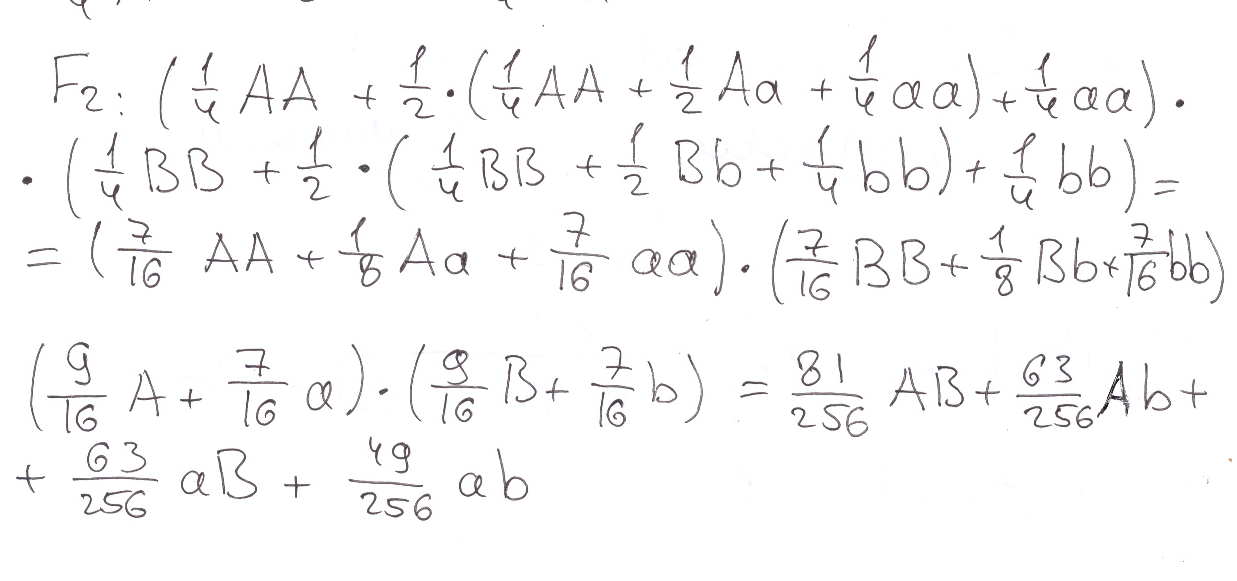 F₂: (1/4 AA + 1/2 · (1/4 AA + 1/2 Aa + 1/4 aa) + 1/4 aa) ·
· (1/4 BB + 1/2 · (1/4 BB + 1/2 Bb + 1/4 bb) + 1/4 bb) =
= (7/16 AA + 1/8 Aa + 7/16 aa) · (7/16 BB + 1/8 Bb + 7/16 bb)
(9/16 A + 7/16 a) · (9/16 B + 7/16 b) = 81/256 AB + 63/256 Ab +
+ 63/256 aB + 49/256 ab